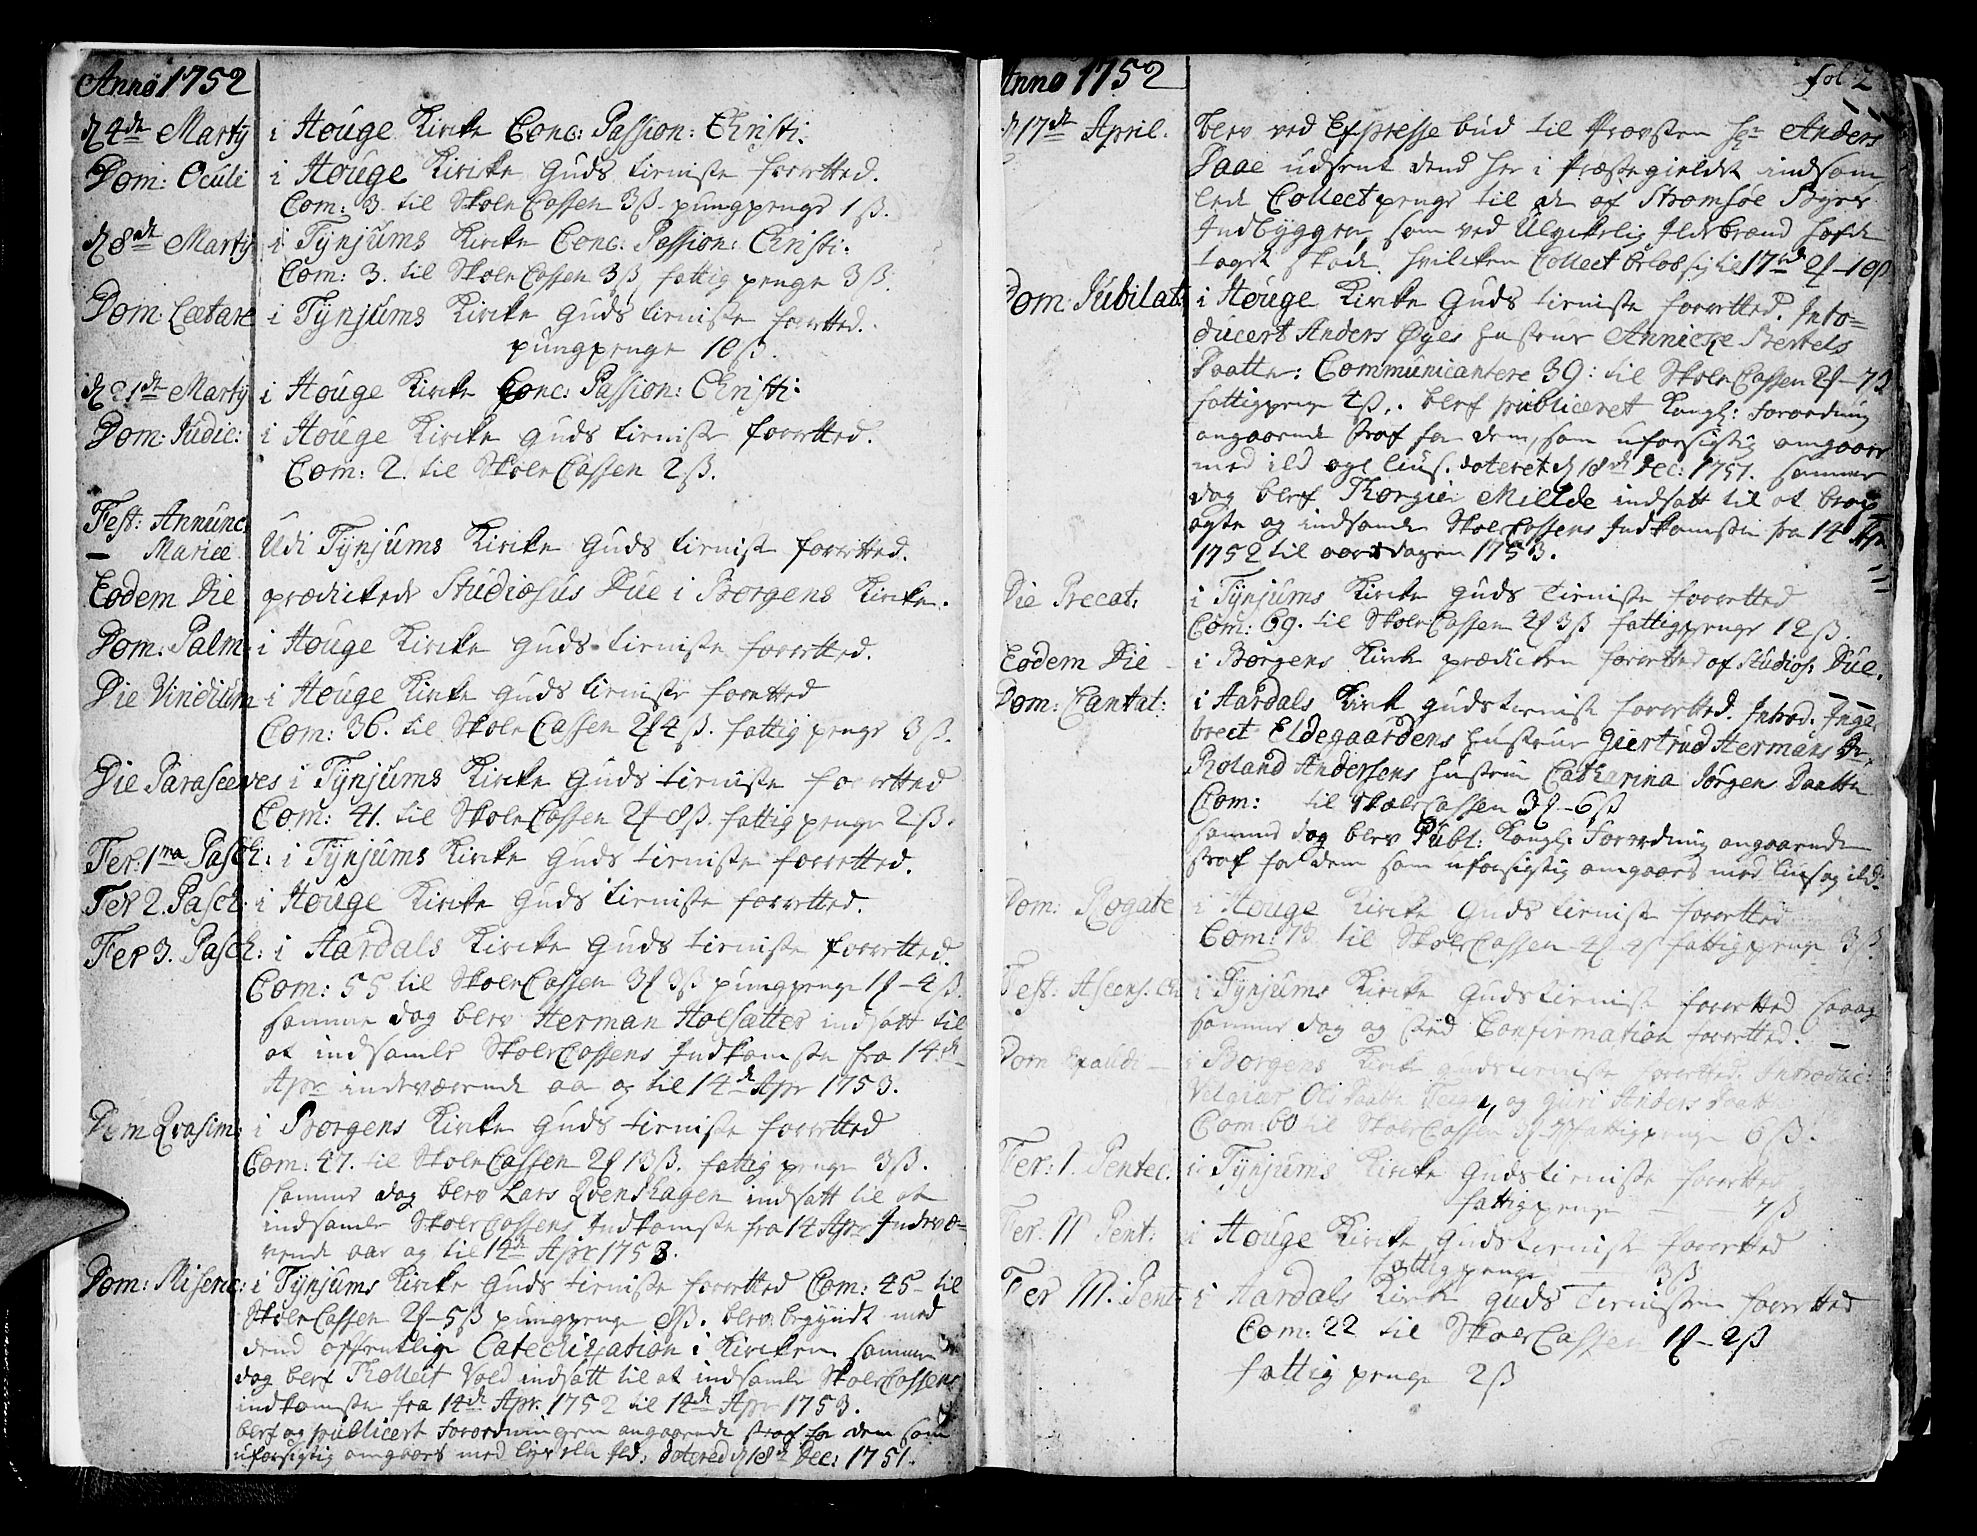 Anno 1752
d 4de Martij i Houge Kircke Conc: Passion: Christi.
Dom: Oculi i Houge Kircke Guds tieniste forretted.
Com: 3. til Skole Cassen 3ß. pungpenge 1ß.
d 8de Martij i Tynjums Kircke Conc: Passion: Christi.
Com: 3. til Skole Cassen 3ß fattig penge 3ß.
Dom: Lætare i Tynjums Kircke Guds tieniste forretted.
pungpenge 10ß.
d 21de Martij i Houge Kircke Conc: Passion: Christi.
Dom: Judic: i Houge Kircke Guds tieniste forretted.
Com: 2. til Skole Cassen 2ß.
Fest: Annunc.
Mariæ Udi Tynjums Kircke Guds tieniste forretted.
Eodem Die prædickede Studiosus Due i Borgens Kircke.
Dom: Palm: i Houge Kircke Guds tieniste forretted.
Die Viridium i Houge Kircke Guds tieniste forretted
Com: 36. til Skole Cassen 2ƒ 4ß. fattig penge 3ß.
Die Parasceves i Tynjums Kircke Guds tieniste forretted
Com: 41. til Skole Cassen 2ƒ 8ß. fattig penge 2ß.
Fer. 1ma Pasch: i Tynjums Kircke Guds tieniste forretted.
Fer 2. Pasch: i Houge Kircke Guds tieniste forretted.
Fer 3. Pasch: i Aardals Kircke Guds tieniste forretted.
Com: 55 til Skole Cassen 3ƒ 3ß pungpenge 1ƒ - 4ß.
samme dag blev Herman Hoesatter indsatt til
at indsamle Skole Cassens Indkomste fra 14de
Apr indeværende aar og til 14de Apr 1753.
Dom Qvasim: i Borgens Kircke Guds tieniste forretted
Com: 47. til Skole Cassen 2ƒ 13ß. fattig penge 3ß.
samme dag blev Lars Qvenshagen indsatt til at
indsamle Skole Cassens Indkomste fra 14 Apr Indevæ=
rende aar og til 14de Apr 1753.
Dom: Miseric: i Tynjums Kircke Guds tieniste forretted Com: 45 - til
Skole Cassen 2ƒ - 5ß pungpenge 8ß. blev begyndt med
dend offentlige Catechization i Kircken samme
dag blef Tholleif Vold indsatt til at indsamle Skole Cassens
indkomste fra 14de Apr. 1752 til 14de Apr 1753.
blef og publicert Forordningen angaaende straf for dem som
uforsigtig omgaaes med lys eller Ild: datered d 18de Dec: 1751.
Anno 1752 fol 2
d 17de April. blev ved Expresse bud til Provsten Hr Anders
Daae udsent dend her i Præstegieldet indsam
lede Collect penge til de af Strømsøe Byes
Indbyggere, som ved Ulykkelig Ildebrand hafde
taget skade. hvilcken Collect beløb sig til 17rd 2ƒ - 10ß
Dom: Jubilat: i Houge Kircke Guds tieniste forretted. Intro=
ducert Anders Øyes hustrue Annicke Bertels
Daatter: Communicantere 39: til Skole Cassen 2ƒ - 7ß
fattigpenge 4ß. blef publiceret Kongl: Forordning
angaaende straf for dem, som uforsigtig omgaaes
med ild og lius. dateret d 18de Dec: 1751. samme
dag blef Thorgier Mielde indsatt til at tage
agte og indsamle Skole Cassens Indkomster fra 14de Apr
1752 til aarsdagen 1753.
Die Precat. i Tynjums Kircke Guds tieniste forretted
Com: 69. til Skole Cassen 2ƒ 3ß fattigpenge 12ß.
Eodem Die - i Borgens Kircke prædicken forretted af Studios: Due.
Dom: Cantat: i Aardals Kirck gudstieniste forretted. Introd. Inge
bret Eldegaardens hustrue Giertrud Hermans Dr,
Roland Andersens hustrue Catharina Jørgens Daatter
Com: til Skole Cassen 3ƒ - 6ß
samme dag blev Publ: Kongl: Forordning angaaende
straf for dem som uforsigtig omgaaes med lius og ild.
Dom: Rogate i Houge Kircke Guds tieniste forretted
Com: 73 til Skole Cassen 4ƒ 4ß fattigpenge 3ß.
Fest: Ascens. Ch i Tynjums Kircke Guds tieniste forretted
samme dag og sted Confirmation forretted.
Dom Exaudi - i Borgens Kirck gudstieniste forretted. Introduc:
og Guri Anders Daatter
Com: 60 til Skole Cassen fattigpenge 6ß.
Fer: I. Pentec. i Tynjums Kircke Guds tieniste forretted
fattigpenge - - 7ß
Fer. II Pent: i Houge Kircke Guds tieniste forretted
fattigpenge - 3ß
Fer III. Pent: i Aardals Kirck guds tienisten forretted
Com: 22 til Skole Cassen 1ƒ - 2ß
fattig penge 2ß